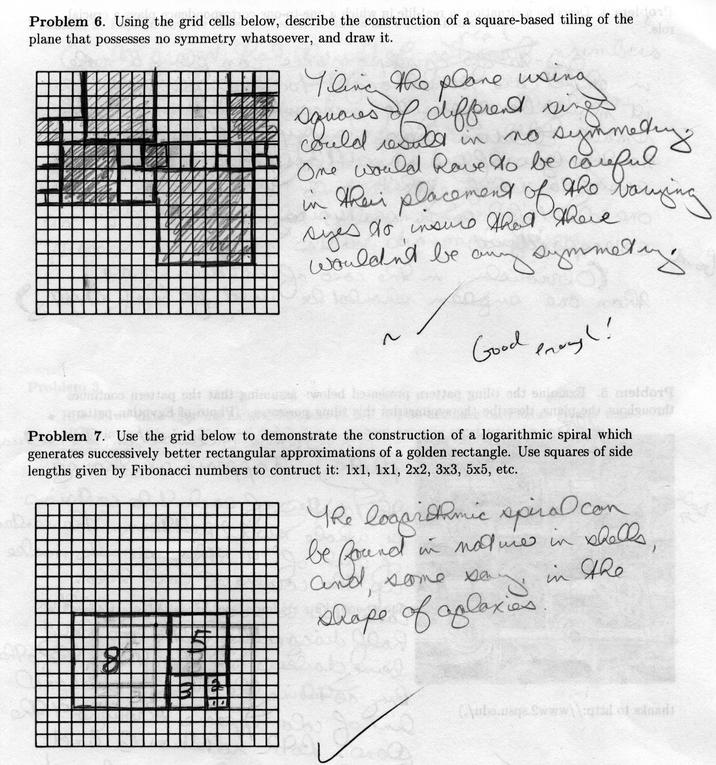 Problem 6. Using the grid cells below, describe the construction of a square-based tiling of the
plane that possesses no symmetry whatsoever, and draw it.
Tiling the plane using
squares of different sizes
could result in no symmetry.
One would have to be careful
in their placement of the varying
sizes to insure that there
wouldnt be any symmetry.
Good enough!
Problem 7. Use the grid below to demonstrate the construction of a logarithmic spiral which
generates successively better rectangular approximations of a golden rectangle. Use squares of side
lengths given by Fibonacci numbers to contruct it: 1x1, 1x1, 2x2, 3x3, 5x5, etc.
The logarithmic spiral can
be found in nature in shells,
and, some say, in the
shape of galaxies.
8
5
3
2